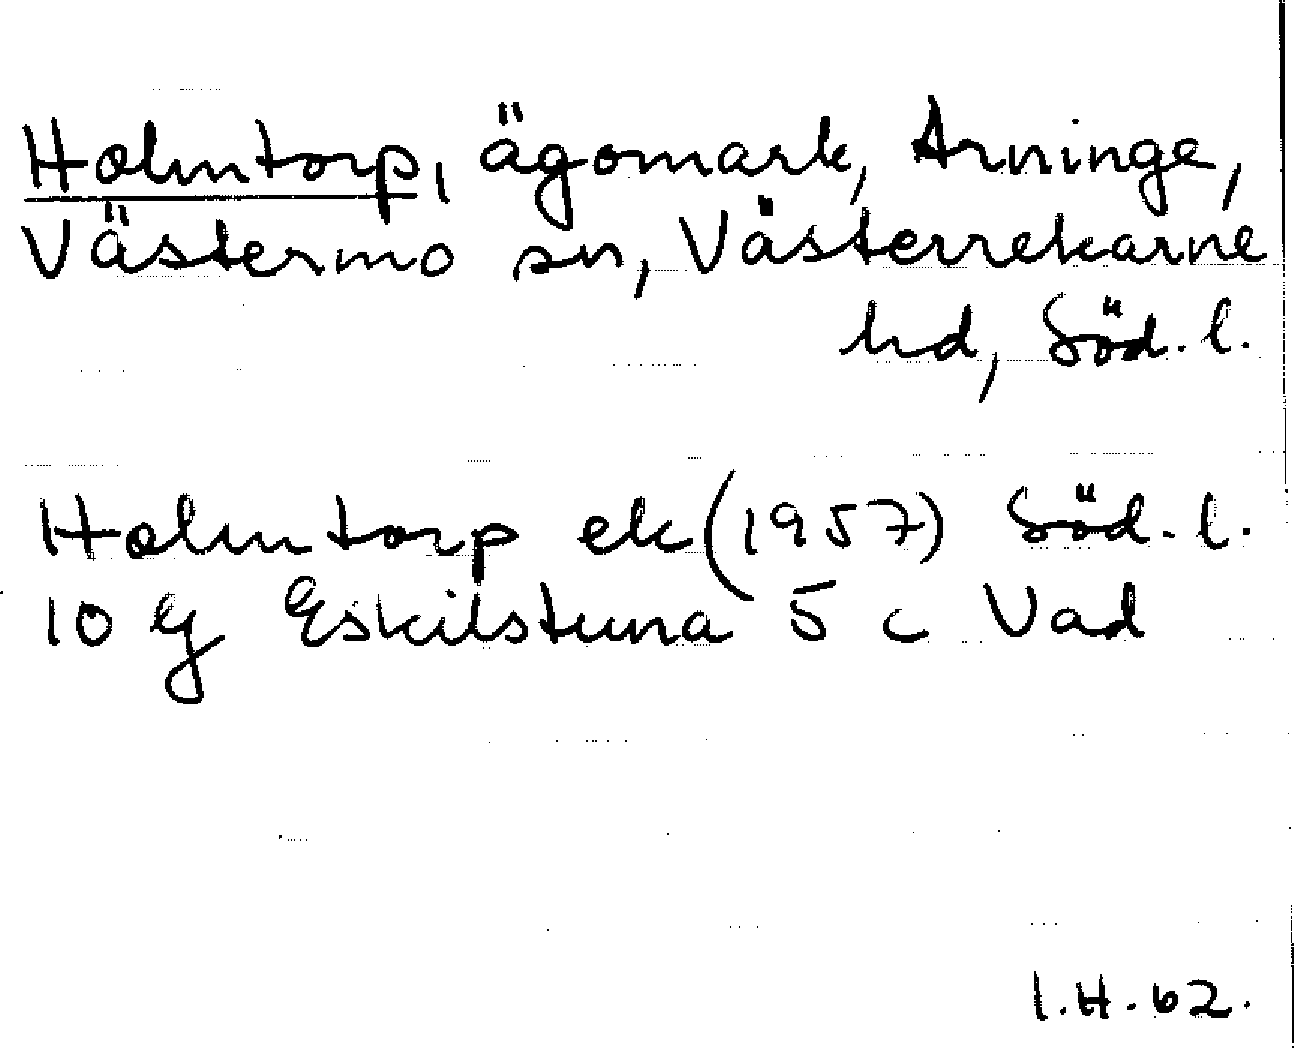 Holmtorp, ägomark, Arninge,
Västermo sn, Västerrekarne
hd, Söd. l.
Holmtorp ek (1957) Söd. l.
10 G Eskilstuna 5 c Vad
I.H. 62.